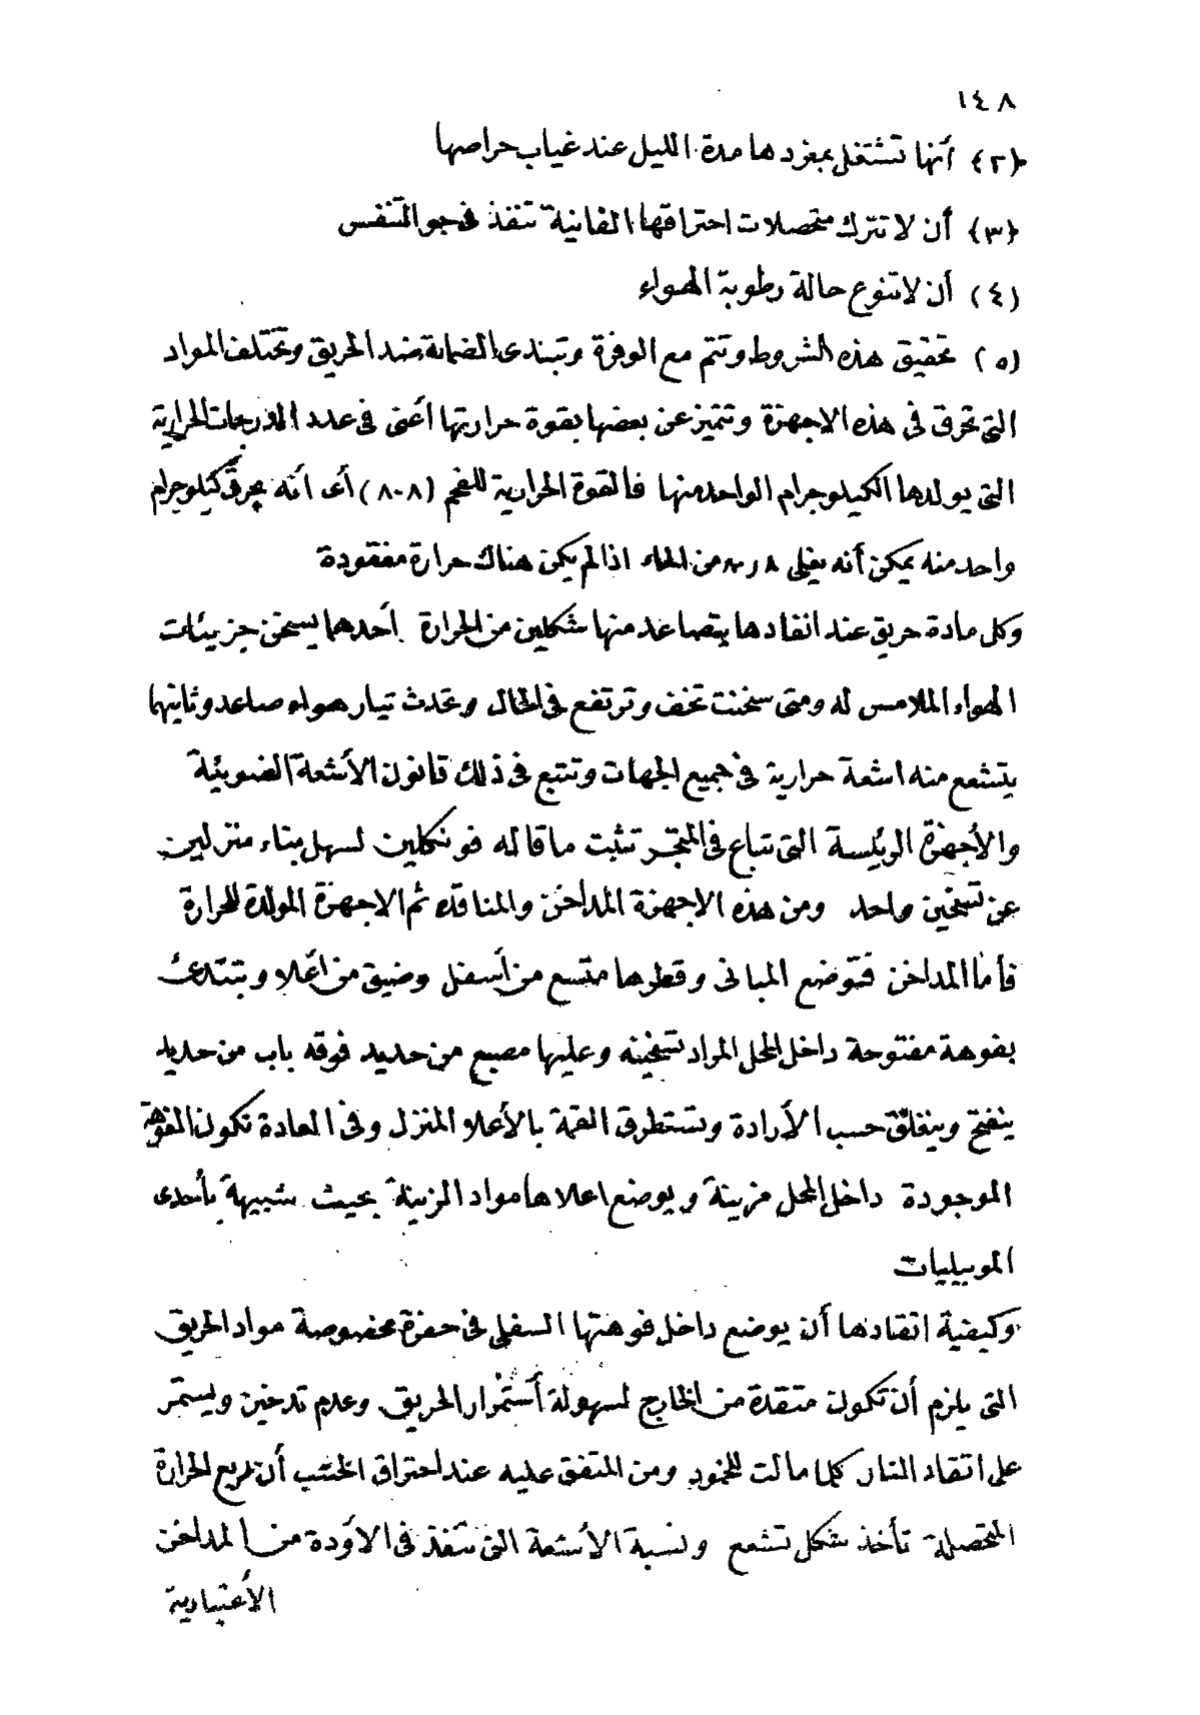 ١٤٨
(٢) أنها تشتغل بمفردها مدة الليل عند غياب حراصها
(٣) أن لا تترك متحصلات احتراقها الغانية تنفذ فى جو التنفس
(٤) أن لا تنوع حالة رطوبة الهواء
(٥) تحقيق هذه الشروط وتتم مع الوفرة وتبتدى الضمانة ضد الحريق وتختلف المواد
التى تحرق فى هذه الاجهزة وتتميز عن بعضها بقوة حرارتها أعنى فى عدد الدرجات الحرارية
التى يولدها الكيلو جرام الواحد منها فالقوة الحرارية للفحم (٨٠٨) أى أنه بحرق كيلوجرام
واحد منه يمكن أنه يغلى من الماء اذا لم يكن هناك حرارة مفقودة
وكل مادة حريق عند اتقادها يتصاعد منها شكلين من الحرارة أحدهما يسخن جزيئات
الهواء الملامس له ومتى سخنت تخف وترتفع فى الحال وتحدث تيار هواء صاعد وثانيهما
يتشعع منه اشعة حرارية فى جميع الجهات وتتبع فى ذلك قانون الأشعة الضوئية
والأجهزة الرئيسة التى تباع فى المتجر تثبت ما قاله فونكلين لسهل بناء منزلين
عن تسخين واحد ومن هذه الاجهزة المداخن والمناقد ثم الاجهزة المولدة للحرارة
فأما المداخن فتوضع المبانى وقطرها متسع من أسفل وضيق من أعلا وتبتدئ
بفوهة مفتوحة داخل المحل المراد تسخينه وعليها مصبع من حديد فوقه باب من حديد
ينفتح وينغلق حسب الأرادة وتستطرق القمة بالأعلا المنزل وفى العادة تكون الفوهة
الموجودة داخل المحل مزينة ويوضع اعلاها مواد الزينة بحيث شبيهة بأحدى
الموبيليات
وكيفية اتقادها أن يوضع داخل فوهتها السفلى فى حفرة مخصوصة مواد الحريق
التى يلزم أن تكون متقدة من الخارج لسهولة أستمرار الحريق وعدم تدخين ويستمر
على اتقاد النار كلما مالت للخمود ومن المتفق عليه عند احتراق الخشب أن ربع الحرارة
المتحصلة تأخذ شكل تشعع ونسبة الأشعة التى تنفذ فى الأودة من المداخن
الأعتيادية